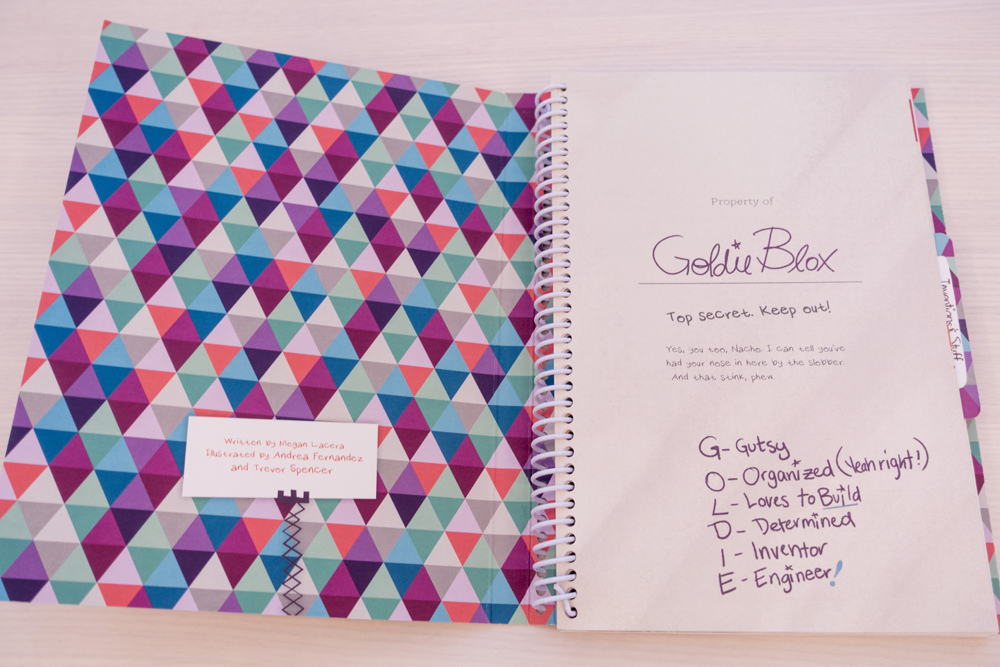 Written by Megan Lacera
Illustrated by Andrea Fernandez
and Trevor Spencer
Property of
Goldie Blox
Top secret. Keep out!
Yes, you too, Nacho. I can tell you've
had your nose in here by the slobber.
And that stink, phew.
G- Gutsy
O- Organized (Yeah right!)
L- Loves to Build
D- Determined
I- Inventor
E- Engineer!
& Stuff